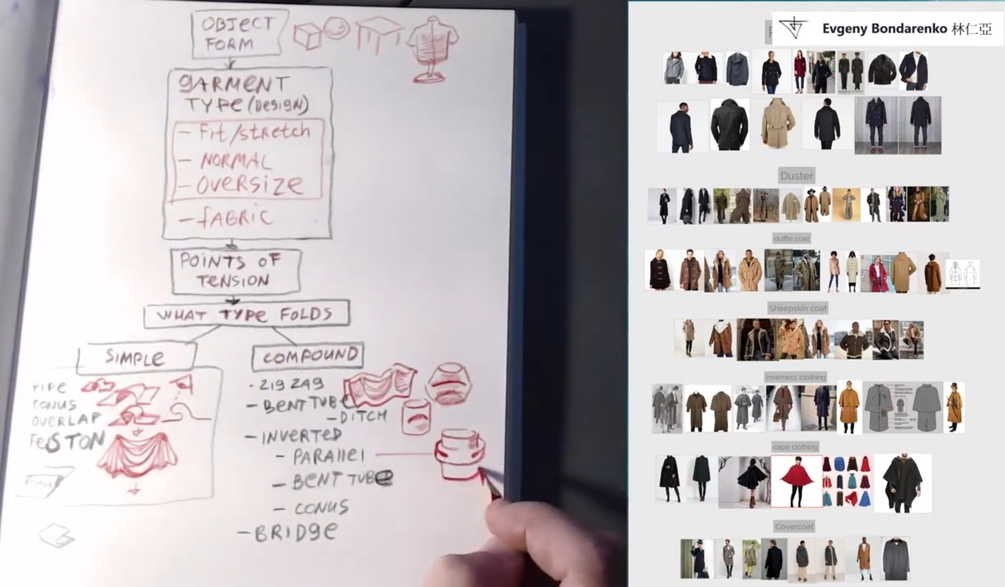 OBJECT
FORM
GARMENT
TYPE (DESIGN)
- Fit/stretch
- NORMAL
- OVERSIZE
- fABRIC
POINTS OF
TENSION
WHAT TYPE FOLDS
SIMPLE
PIPE
CONUS
OVERLAP
FESTON
COMPOUND
- ZIG ZAG
- BENT TUBE
- DITCH
- INVERTED
- PARAllEl
- BENT TUBE
- CONUS
- BRIDGE
Evgeny Bondarenko 林仁亞
Duster
duffle coat
Sheepskin coat
inverness clothing
cape clothing
Covercoat